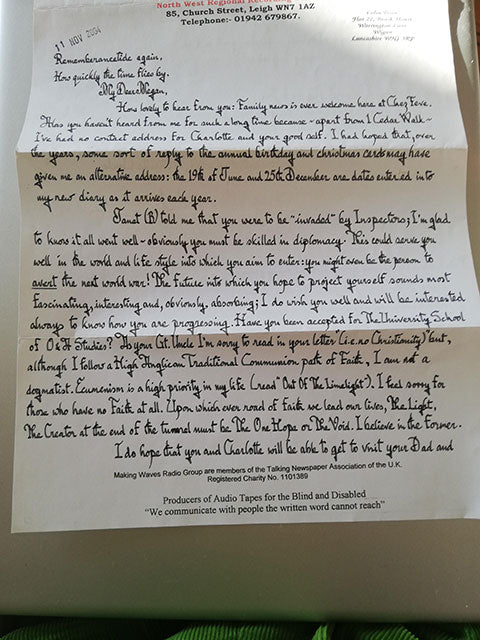 North West Regional Recording
85, Church Street, Leigh WN7 1AZ
Telephone:- 01942 679867.
Wigan
11 NOV 2004
Rememberancetide again,
How quickly the time flies by.
My Deare Megan,
How lovely to hear from you: Family news is ever welcome here at Chez Feve.
Alas you haven't heard from me for such a long time because ~ apart from 1 Cedar Walk ~
I've had no contact address for Charlotte and your good self. I had hoped that, over
the years, some sort of reply to the annual birthday and christmas cards may have
given me an alternative address: the 19th of June and 25th December are dates entered into
my new diary as it arrives each year.
Janet (B) told me that you were to be "invaded" by Inspectors; I'm glad
to know it all went well ~ obviously you must be skilled in diplomacy. This could serve you
well in the world and life style into which you aim to enter: you might even be the person to
avert the next world war! The future into which you hope to project yourself sounds most
fascinating, interesting and, obviously, absorbing; I do wish you well and will be interested
always to know how you are progressing. Have you been accepted for The University School
of O & A Studies? "As your Gt. Uncle I'm sorry to read in your letter" (i.e. no Christianity) but,
although I follow a High Anglican Traditional Communion path of Faith, I am not a
dogmatist. Ecumenism is a high priority in my life (read "Out Of The Limelight"). I feel sorry for
those who have no Faith at all. Upon which ever road of faith we lead our lives, The Light,
The Creator at the end of the tunnel must be The One Hope or The Void. I believe in the Former.
I do hope that you and Charlotte will be able to get to visit your Dad and
Making Waves Radio Group are members of the Talking Newspaper Association of the U.K.
Registered Charity No. 1101389
Producers of Audio Tapes for the Blind and Disabled
"We communicate with people the written word cannot reach"